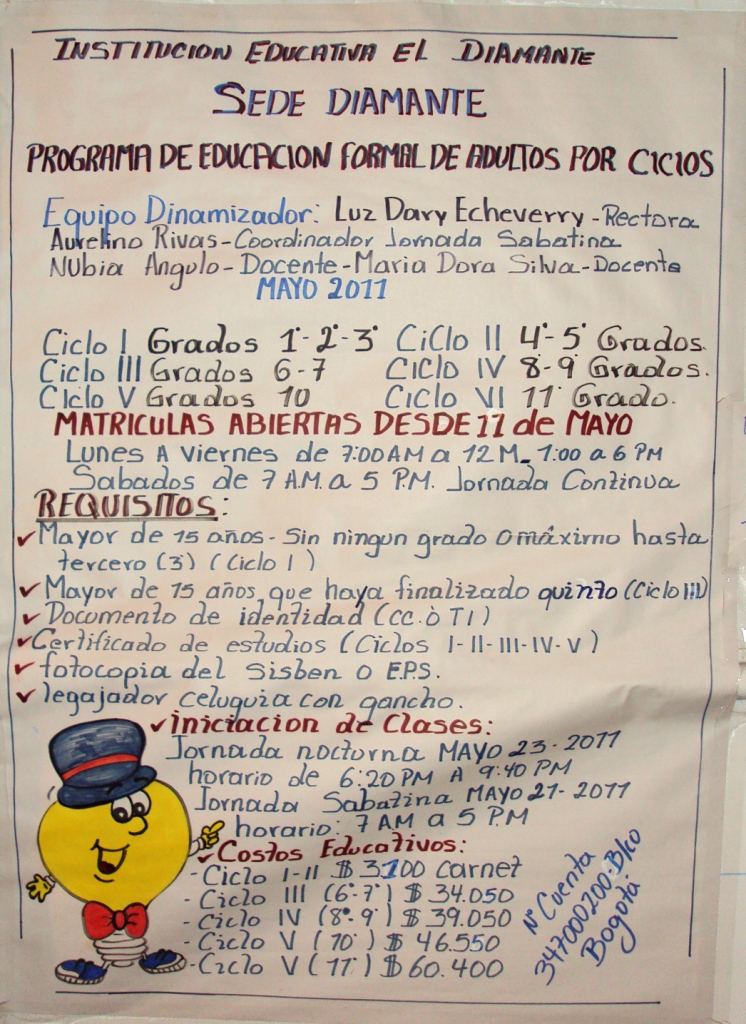 INSTITUCION EDUCATIVA EL DIAMANTE
SEDE DIAMANTE
PROGRAMA DE EDUCACION FORMAL DE ADULTOS POR CICLOS
Equipo Dinamizador: Luz Dary Echeverry - Rectora
Aurelino Rivas - Coordinador Jornada Sabatina
Nubia Angulo - Docente - Maria Dora Silva - Docente
MAYO 2011
Ciclo I Grados 1°-2°-3° Ciclo II 4°-5° Grados.
Ciclo III Grados 6-7 Ciclo IV 8-9 Grados.
Ciclo V Grados 10 Ciclo VI 11° Grado.
MATRICULAS ABIERTAS DESDE 11 de MAYO
Lunes A Viernes de 7:00 AM a 12 M - 1:00 a 6 PM
Sabados de 7 A.M. a 5 P.M. Jornada Continua
REQUISITOS:
✓ Mayor de 15 años - Sin ningun grado O máximo hasta
tercero (3) (Ciclo I)
✓ Mayor de 15 años, que haya finalizado quinto (Ciclo III)
✓ Documento de identidad (CC. ò TI)
✓ Certificado de estudios (Ciclos I-II-III-IV-V)
✓ fotocopia del Sisben O E.P.S.
✓ legajador celuguia con gancho.
✓ Iniciacion de Clases:
Jornada nocturna MAYO 23-2011
horario de 6:20 PM A 9:40 PM
Jornada Sabatina MAYO 21-2011
horario: 7 AM a 5 P.M
✓ Costos Educativos:
- Ciclo I-II $ 3.100 carnet
- Ciclo III (6°-7°) $ 34.050
- Ciclo IV (8°-9°) $ 39.050
- Ciclo V (10°) $ 46.550
- Ciclo V (11°) $ 60.400
N° Cuenta
347000200-Blco
Bogotá